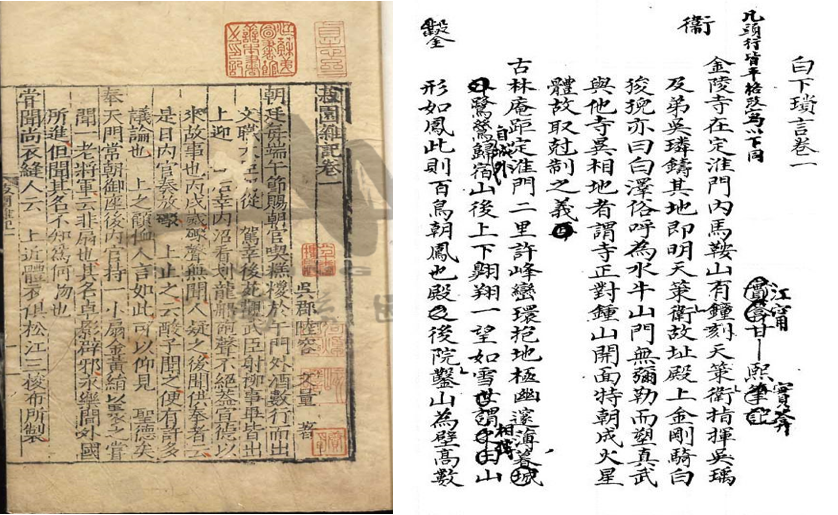 菽園雜記卷一
吳郡陸容 文量 著
朝廷每端午節賜朝官喫糕糉於午門外酒數行而出
文職大臣仍從 駕幸後苑觀武臣射柳事畢皆出
上迎 母后幸內沼看划龍船炮聲不絕蓋宣德以
來故事也丙戌歲炮聲無聞人疑之後聞供奉者云
是日內官奏放炮 上止之云酸子聞之便有許多
議論也 上之顧恤人言如此可以仰見 聖德矣
奉天門常朝御座後內官持一小扇金黃絹以裹之嘗
聞一老將軍云非扇也其名卓影辟邪永樂間外國
所進但聞其名不知為何物也
嘗聞尚衣縫人云 上近體衣俱松江三梭布所製
白下瑣言卷一
江甯 甘熙 實菴
凡頭行皆平格改為以下同
金陵寺在定淮門內馬鞍山有鐘刻天策衞指揮吳瑀
衞
及弟吳璘鑄其地即明天策衞故址殿上金剛騎白
狻猊亦曰白澤俗呼為水牛山門無彌勒而塑真武
與他寺異相地者謂寺正對鍾山開面特朝成火星
體故取尅制之義
古林庵距定淮門二里許峰巒環抱地極幽邃薄暮
自城外鷺鷥歸宿山後上下翱翔一望如雪相傳山
形如鳳此則百鳥朝鳳也殿後院鑿山為壁高數
鑿